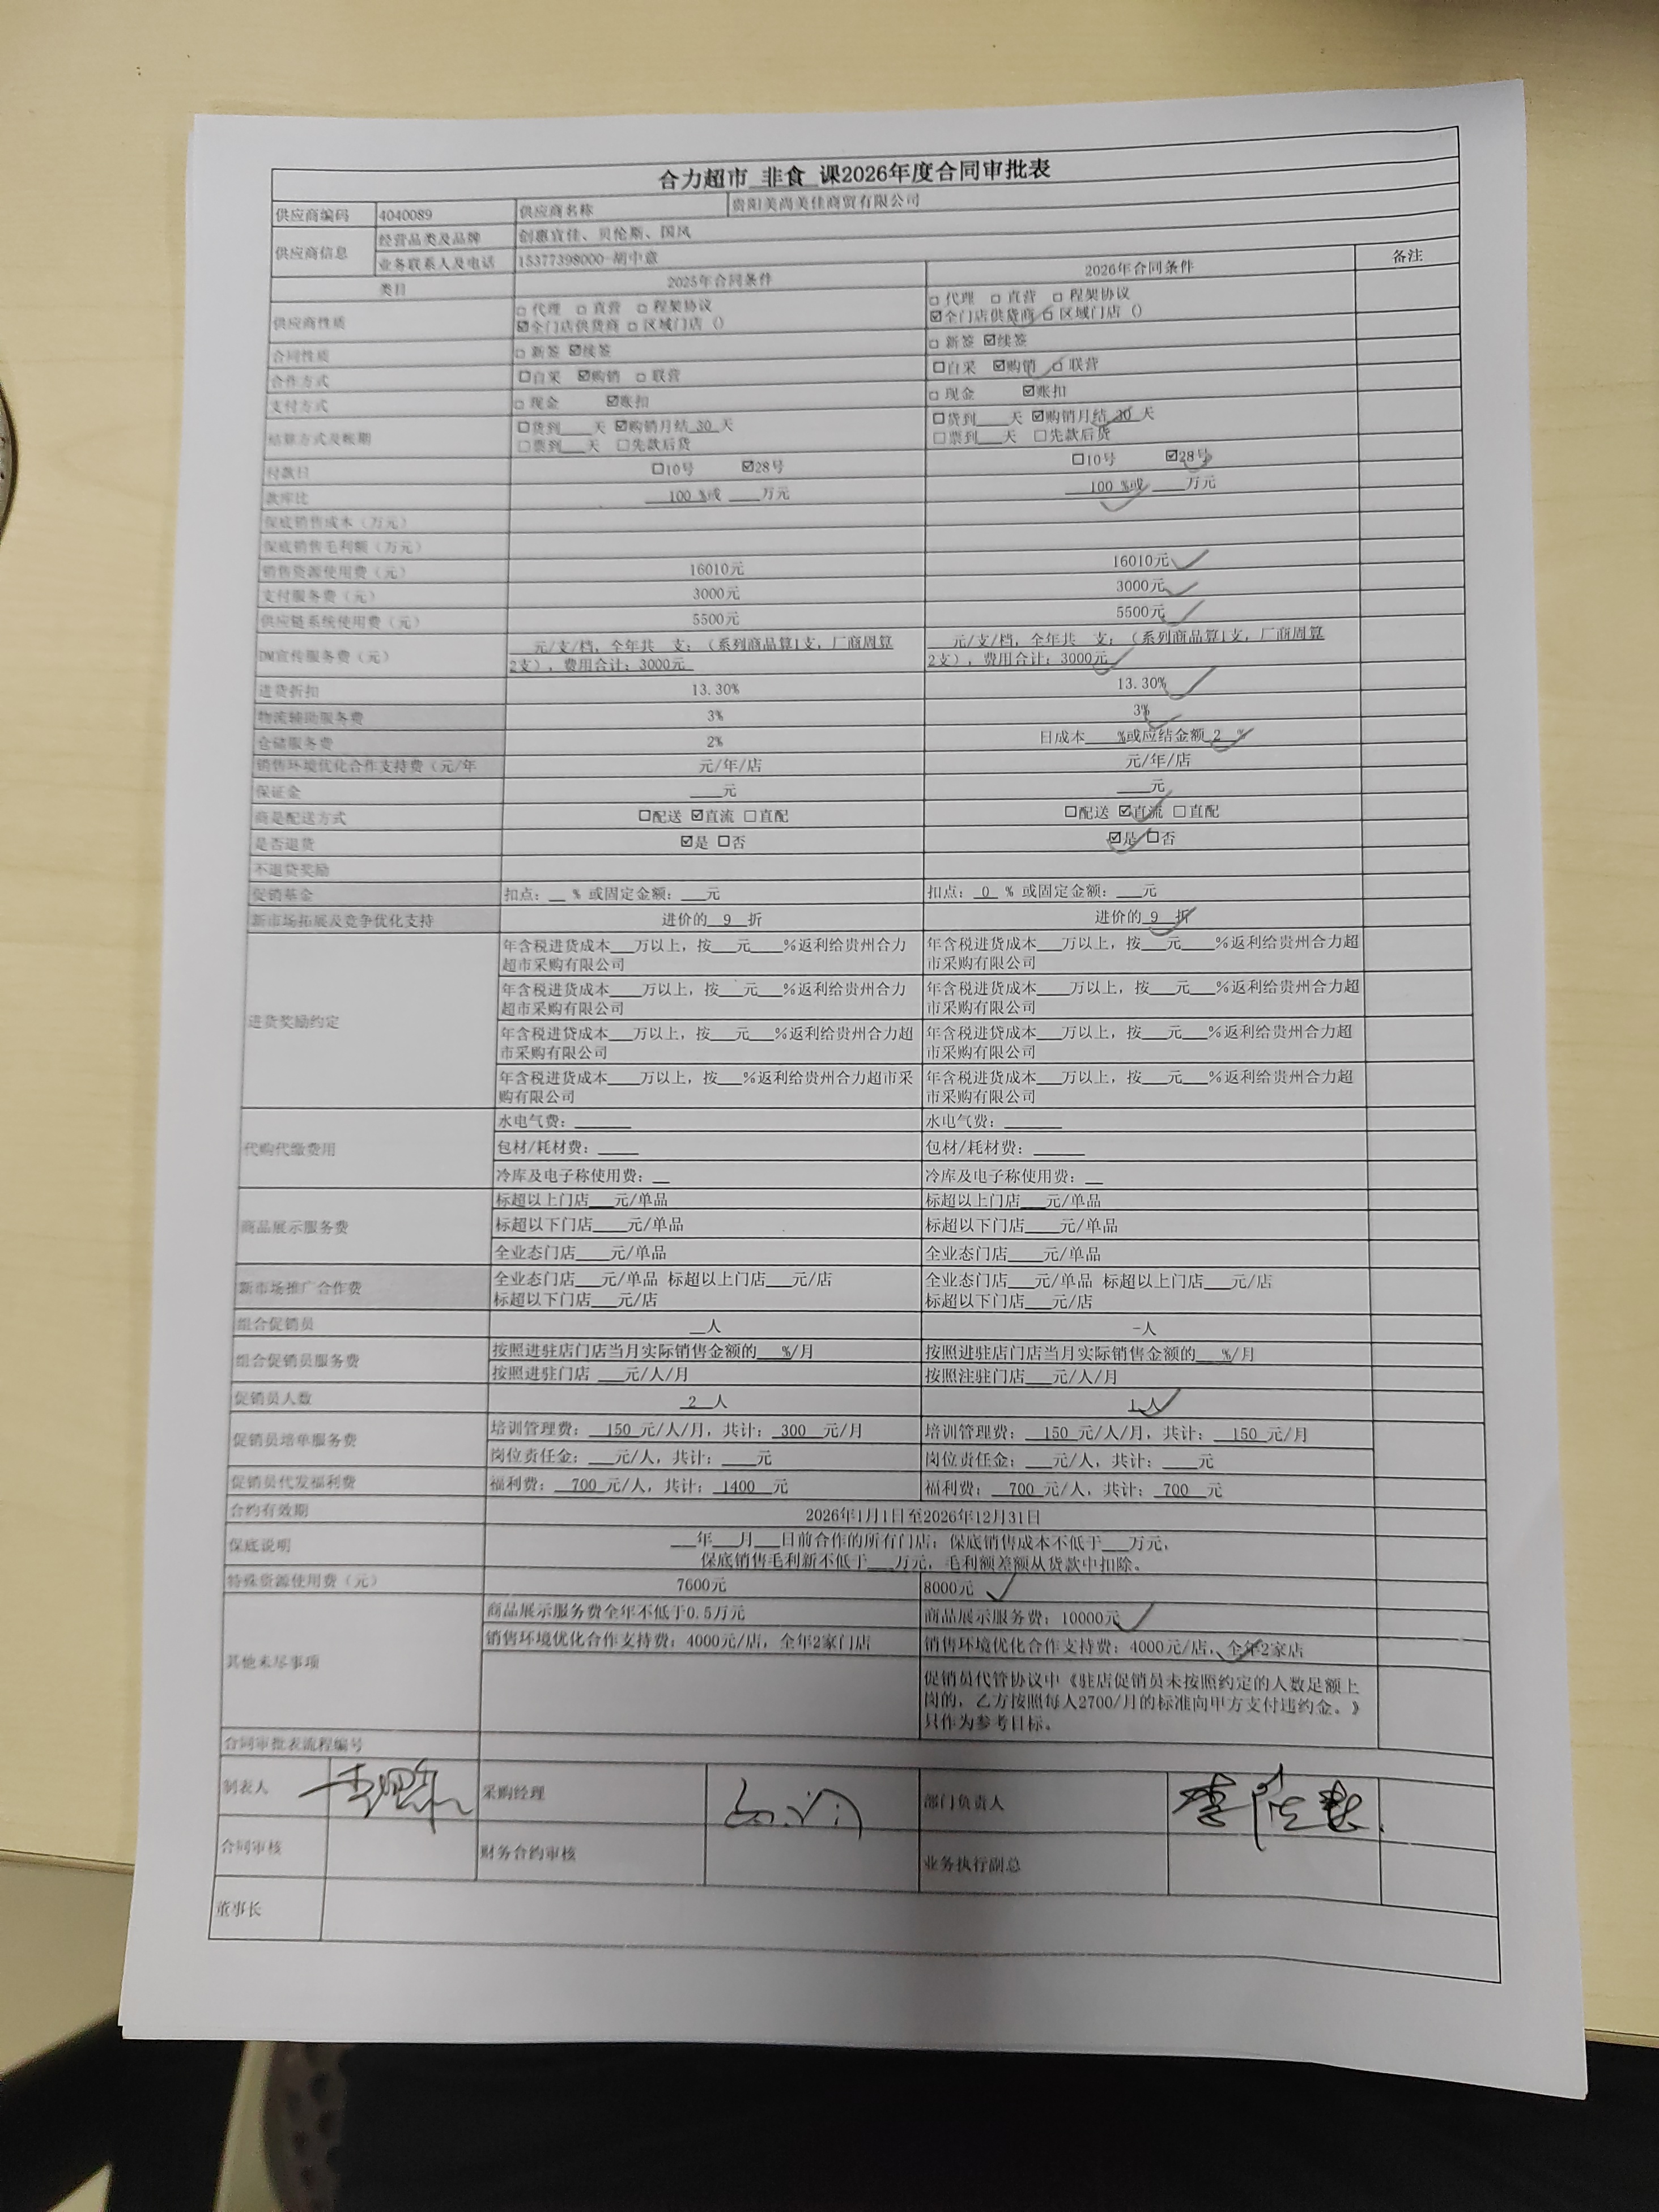 合力超市 非食 课2026年度合同审批表
供应商编码 4040089 供应商名称 贵阳美尚美佳商贸有限公司
供应商信息 经营品类及品牌 创惠宜佳、贝伦斯、国风
业务联系人及电话 15377398000-胡中意
类目 2025年合同条件 2026年合同条件 备注
供应商性质 □ 代理 □ 直营 □ 程架协议 □ 代理 □ 直营 □ 程架协议
☑全门店供货商 □ 区域门店 () ☑全门店供货商 □ 区域门店 ()
合同性质 □ 新签 ☑续签 □ 新签 ☑续签
合作方式 □自采 ☑购销 □ 联营 □自采 ☑购销 □ 联营
支付方式 □ 现金 ☑账扣 □ 现金 ☑账扣
结算方式及账期 □货到___天 ☑购销月结 30 天 □货到___天 ☑购销月结 30 天
□票到___天 □先款后货 □票到___天 □先款后货
付款日 □10号 ☑28号 □10号 ☑28号
款库比 100 %或 ___万元 100 %或 ___万元
保底销售成本（万元）
保底销售毛利额（万元）
销售资源使用费（元） 16010元 16010元
支付服务费（元） 3000元 3000元
供应链系统使用费（元） 5500元 5500元
DM宣传服务费（元） 元/支/档，全年共 支；（系列商品算1支，厂商周算 元/支/档，全年共 支；（系列商品算1支，厂商周算
2支），费用合计：3000元 2支），费用合计：3000元
进货折扣 13.30% 13.30%
物流辅助服务费 3% 3%
仓储服务费 2% 日成本___%或应结金额 2 %
销售环境优化合作支持费（元/年 元/年/店 元/年/店
保证金 ___元 ___元
商是配送方式 □配送 ☑直流 □直配 □配送 ☑直流 □直配
是否退货 ☑是 □否 ☑是 □否
不退货奖励
促销基金 扣点：__ % 或固定金额：___元 扣点： 0 % 或固定金额：___元
新市场拓展及竞争优化支持 进价的 9 折 进价的 9 折
进货奖励约定 年含税进货成本___万以上，按___元____%返利给贵州合力 年含税进货成本___万以上，按___元____%返利给贵州合力超
超市采购有限公司 市采购有限公司
年含税进货成本____万以上，按___元___%返利给贵州合力 年含税进货成本____万以上，按___元___%返利给贵州合力超
超市采购有限公司 市采购有限公司
年含税进货成本___万以上，按___元___%返利给贵州合力超 年含税进货成本___万以上，按___元___%返利给贵州合力超
市采购有限公司 市采购有限公司
年含税进货成本____万以上，按___%返利给贵州合力超市采 年含税进货成本____万以上，按___元___%返利给贵州合力超
购有限公司 市采购有限公司
代购代缴费用 水电气费：______ 水电气费：______
包材/耗材费：____ 包材/耗材费：_____
冷库及电子称使用费：__ 冷库及电子称使用费：__
商品展示服务费 标超以上门店___元/单品 标超以上门店___元/单品
标超以下门店____元/单品 标超以下门店____元/单品
全业态门店____元/单品 全业态门店____元/单品
新市场推广合作费 全业态门店___元/单品 标超以上门店___元/店 全业态门店___元/单品 标超以上门店___元/店
标超以下门店___元/店 标超以下门店___元/店
组合促销员 __人 -人
组合促销员服务费 按照进驻店门店当月实际销售金额的___%/月 按照进驻店门店当月实际销售金额的___%/月
按照进驻门店 ___元/人/月 按照注驻门店___元/人/月
促销员人数 2 人 1人
促销员培单服务费 培训管理费： 150 元/人/月，共计： 300 元/月 培训管理费： 150 元/人/月，共计： 150 元/月
岗位责任金：___元/人，共计：____元 岗位责任金：___元/人，共计：____元
促销员代发福利费 福利费： 700 元/人，共计： 1400 元 福利费： 700 元/人，共计： 700 元
合约有效期 2026年1月1日至2026年12月31日
保底说明 ___年___月___日前合作的所有门店；保底销售成本不低于___万元，
保底销售毛利新不低于___万元，毛利额差额从货款中扣除。
特殊资源使用费（元） 7600元 8000元
其他未尽事项 商品展示服务费全年不低于0.5万元 商品展示服务费：10000元
销售环境优化合作支持费：4000元/店，全年2家门店 销售环境优化合作支持费：4000元/店，全年2家店
促销员代管协议中《驻店促销员未按照约定的人数足额上
岗的，乙方按照每人2700/月的标准向甲方支付违约金。》
只作为参考目标。
合同审批表流程编号
制表人 采购经理 部门负责人
合同审核 财务合约审核 业务执行副总
董事长